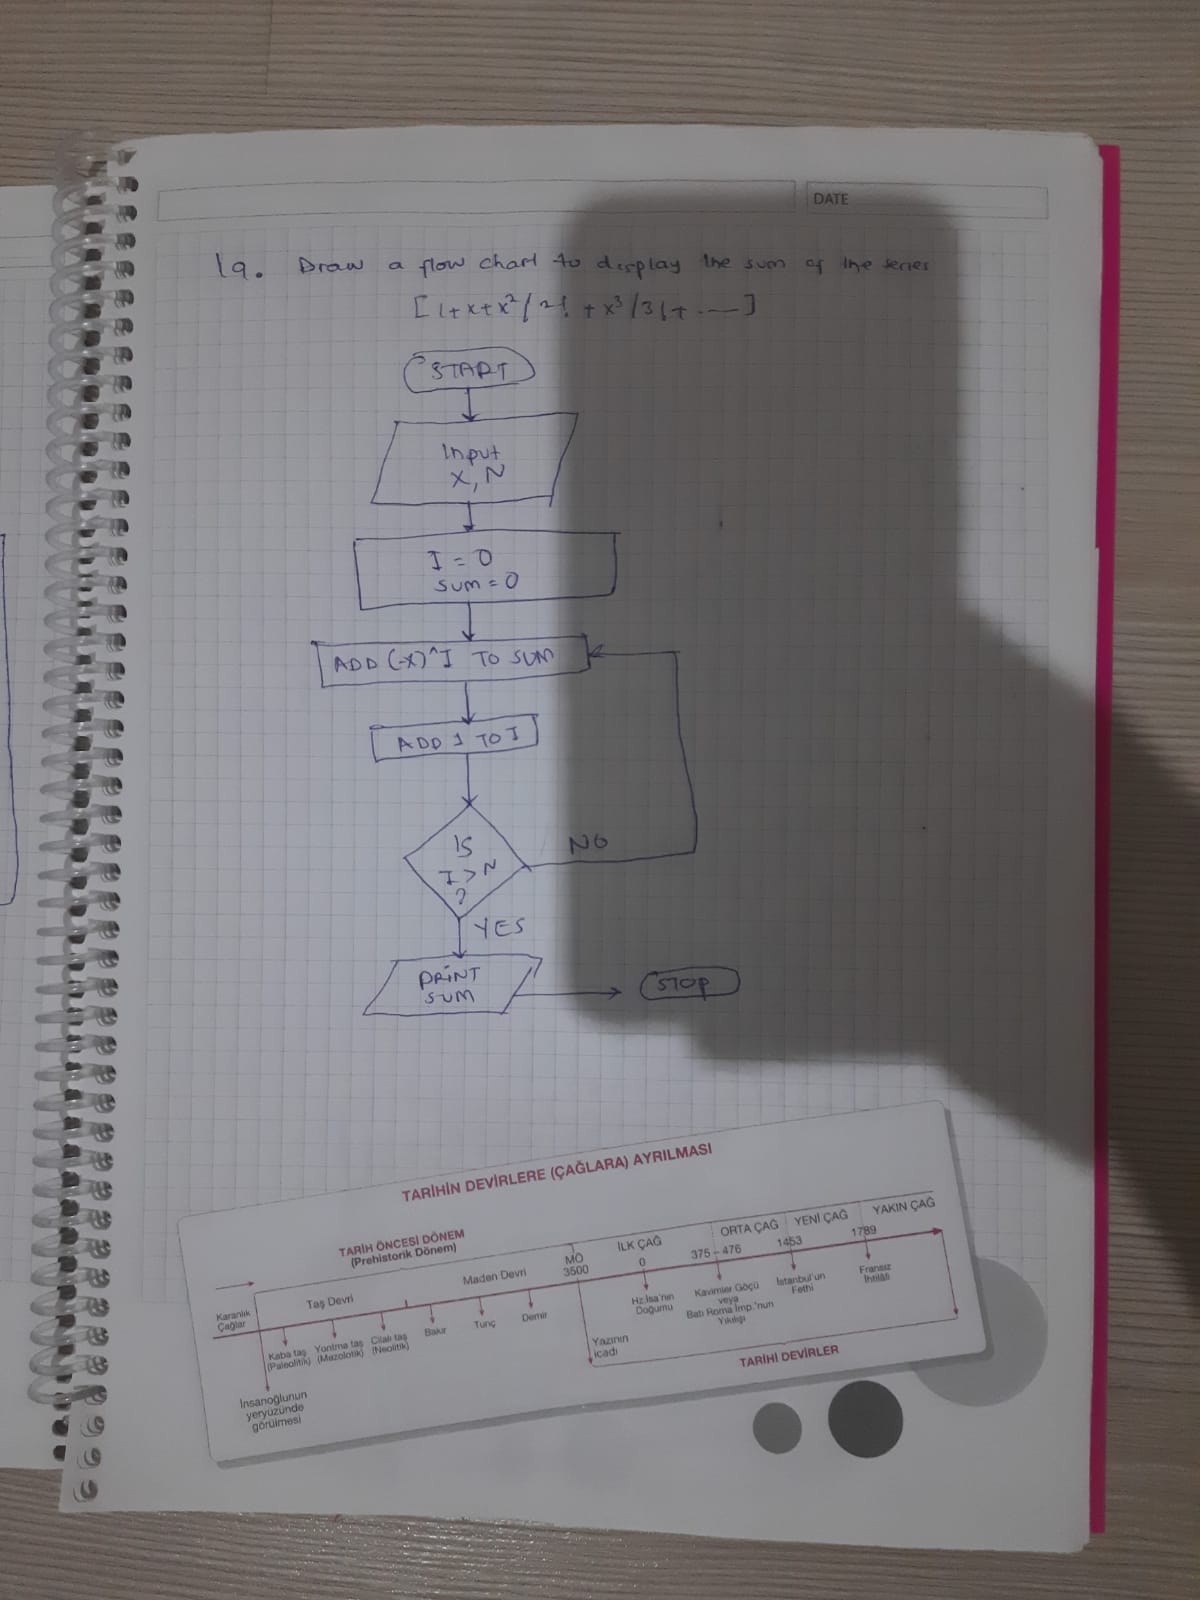 DATE
19. Draw a flow chart to display the sum of the series
[1+x+x²/2! + x³/3!+ ----]
START
Input
X, N
I = 0
SUM = 0
ADD (-X)^I TO SUM
ADD 1 TO I
IS
I > N
?
NO
YES
PRINT
SUM
STOP
TARİHİN DEVİRLERE (ÇAĞLARA) AYRILMASI
TARİH ÖNCESİ DÖNEM
(Prehistorik Dönem)
MÖ
3500
İLK ÇAĞ
0
375 - 476
ORTA ÇAĞ
1453
YENİ ÇAĞ
1789
YAKIN ÇAĞ
Karanlık
Çağlar
Taş Devri
Maden Devri
Kaba taş
(Paleolitik)
Yontma taş
(Mezolotik)
Cilalı taş
(Neolitik)
Bakır
Tunç
Demir
Yazının
icadı
Hz.İsa'nın
Doğumu
Kavimler Göçü
veya
Batı Roma İmp.'nun
Yıkılışı
İstanbul'un
Fethi
Fransız
İhtilâli
İnsanoğlunun
yeryüzünde
görülmesi
TARİHİ DEVİRLER